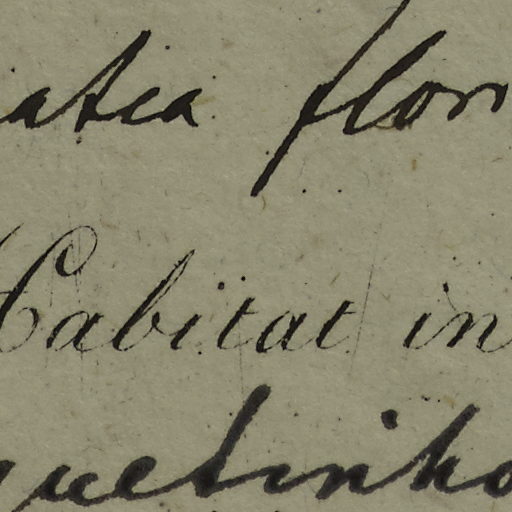 atea flor
Habitat in
quetinho